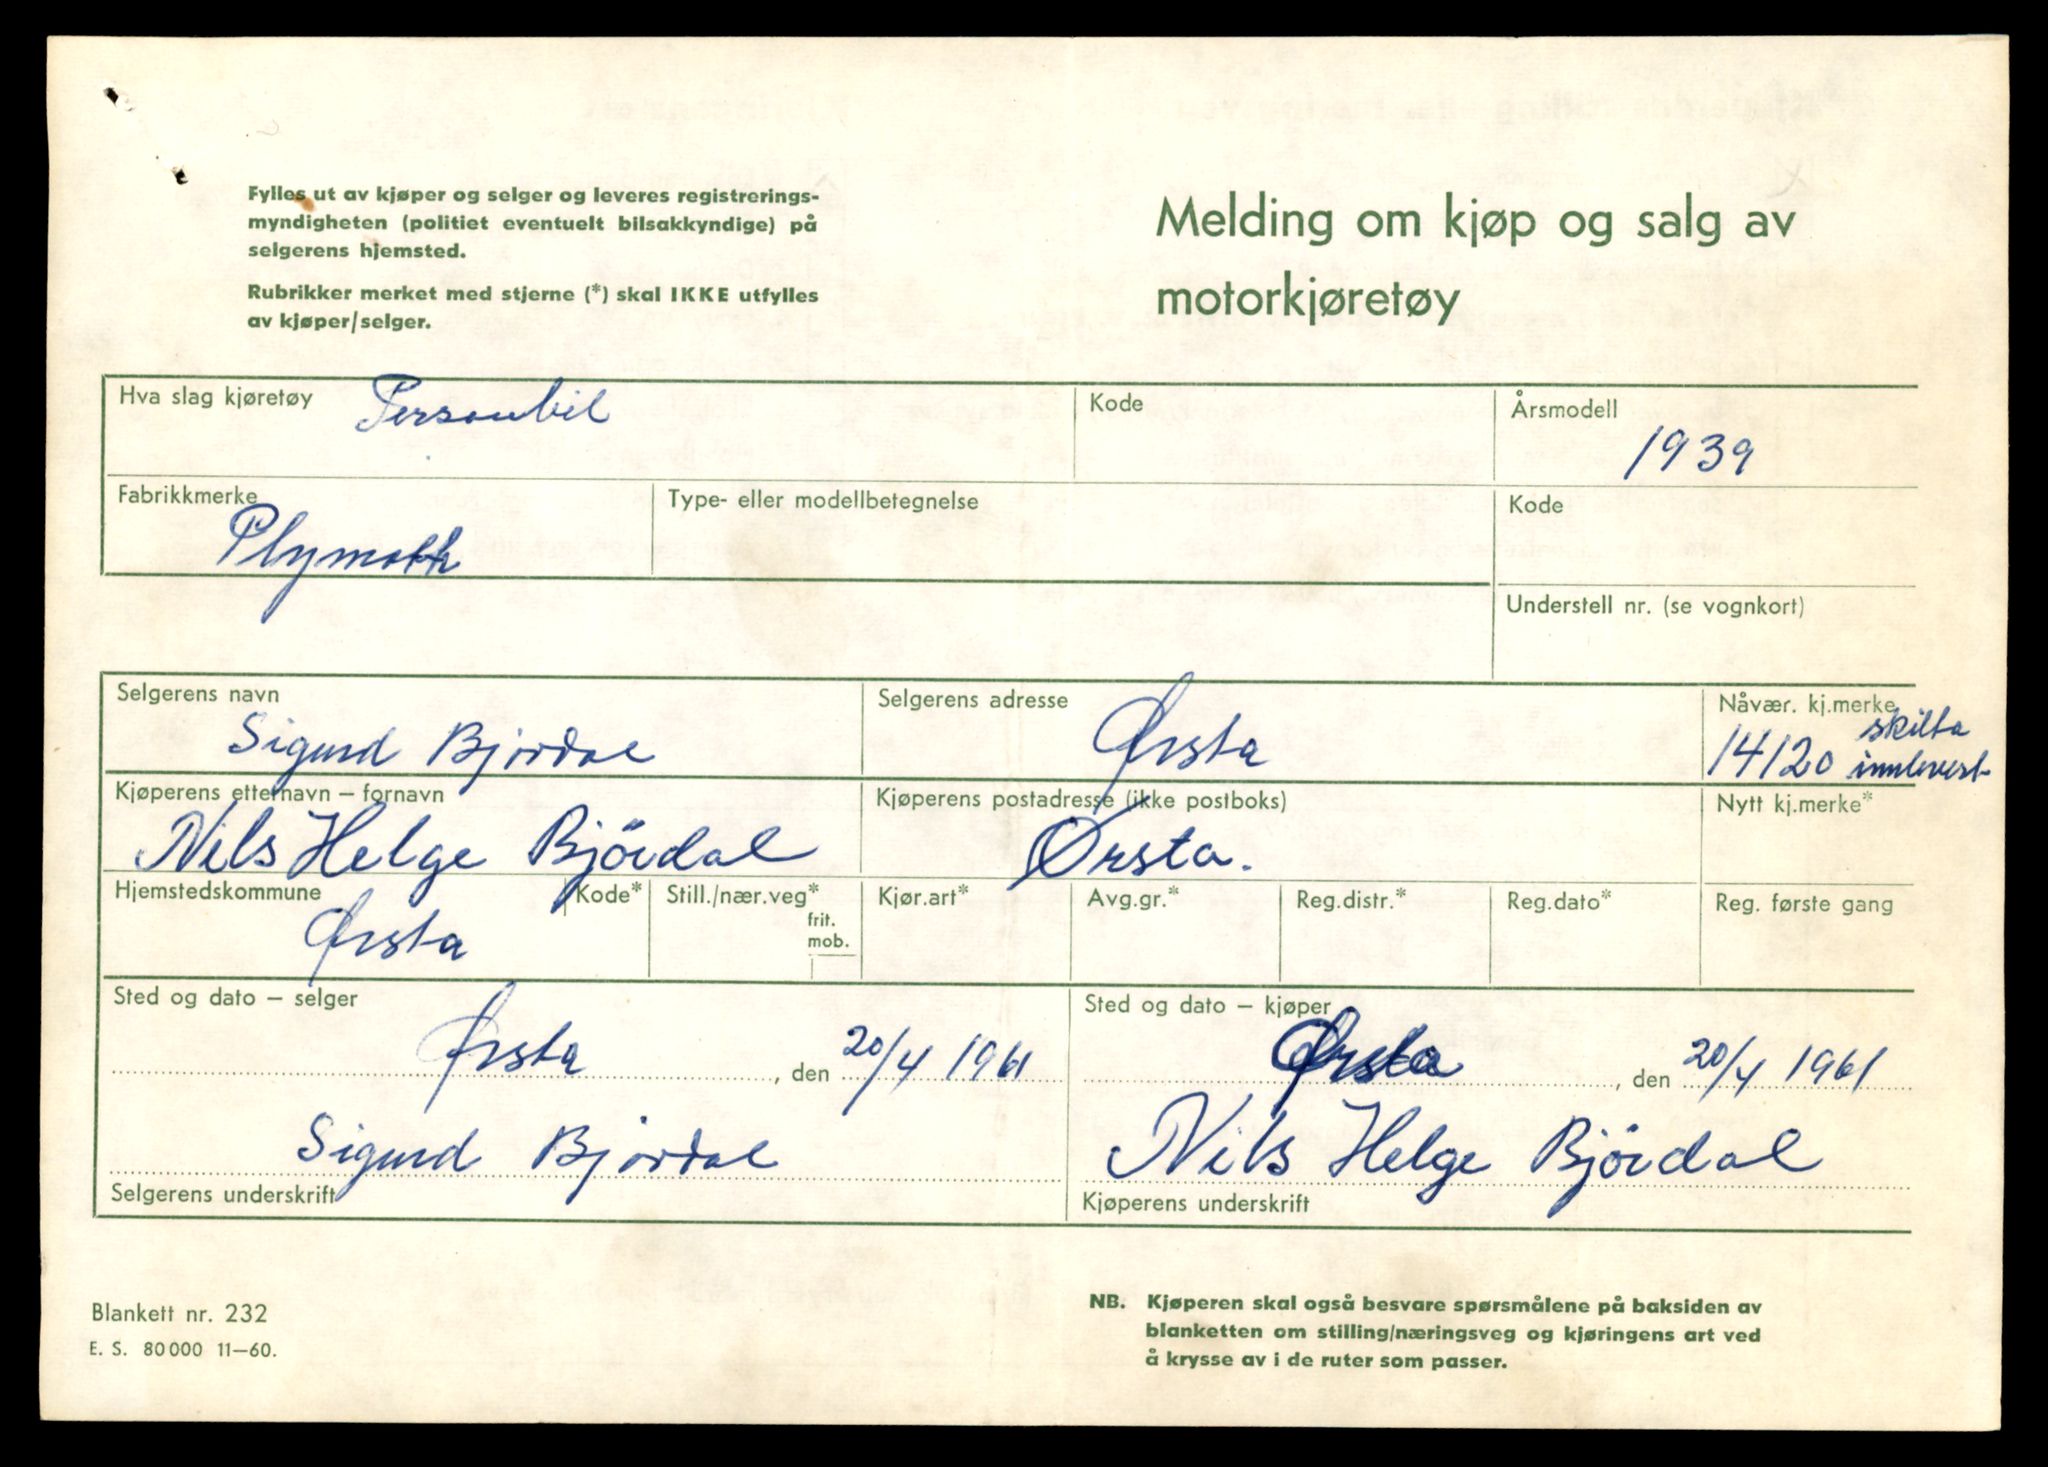 Fylles ut av kjøper og selger og leveres registrerings-
myndigheten (politiet eventuelt bilsakkyndige) på
selgerens hjemsted.
Rubrikker merket med stjerne (*) skal IKKE utfylles
av kjøper/selger.
Melding om kjøp og salg av
motorkjøretøy
Hva slag kjøretøy Personbil
Kode
Årsmodell
1939
Fabrikkmerke
Plymoth
Type- eller modellbetegnelse
Kode
Understell nr. (se vognkort)
Selgerens navn
Sigurd Bjørdal
Selgerens adresse
Ørsta
Nåvær. kj.merke
14120 skilta
innlevert
Kjøperens etternavn – fornavn
Nils Helge Björdal
Kjøperens postadresse (ikke postboks)
Ørsta.
Nytt kj.merke*
Hjemstedskommune
Ørsta
Kode*
Still./nær.veg*
frit.
mob.
Kjør.art*
Avg.gr.*
Reg.distr.*
Reg.dato*
Reg. første gang
Sted og dato – selger
Ørsta, den 20/4 1961
Sigurd Bjørdal
Selgerens underskrift
Sted og dato – kjøper
Ørsta, den 20/4 1961
Nils Helge Björdal
Kjøperens underskrift
Blankett nr. 232
E. S. 80 000 11–60.
NB. Kjøperen skal også besvare spørsmålene på baksiden av
blanketten om stilling/næringsveg og kjøringens art ved
å krysse av i de ruter som passer.